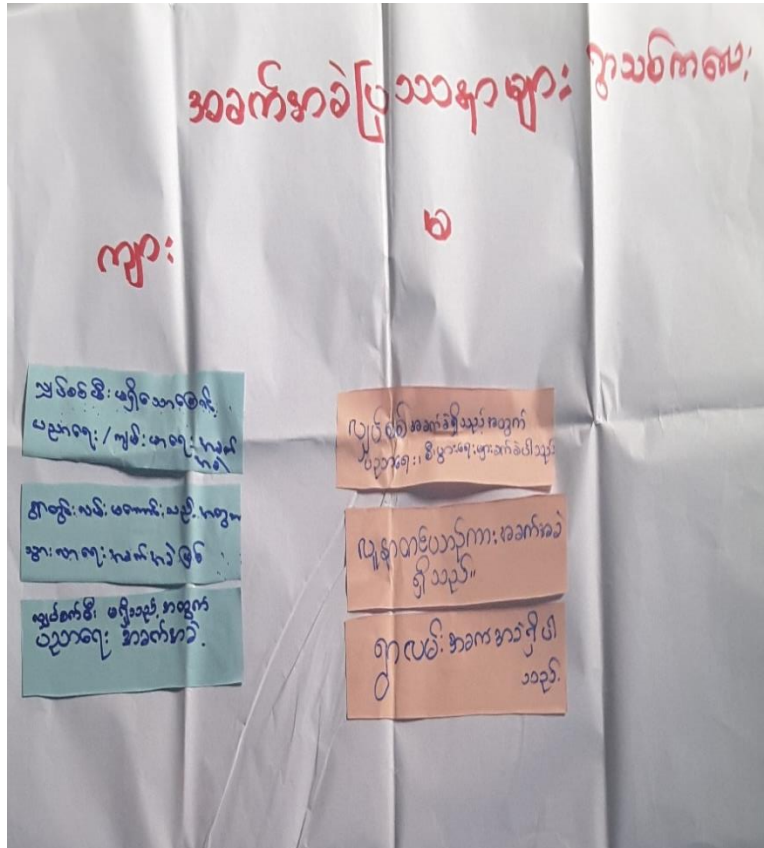 အခက်အခဲပြဿနာများ ရွာသစ်ကလေး
ကျား
မ
လျှပ်စစ်မီးမရှိသောကြောင့်
ပညာရေး/ကျမ်းမာရေး အခက်
အခဲ
ရွာတွင်းလမ်းမကောင်းသည့်အတွက်
သွားလာရေးအခက်အခဲဖြစ်
လျှပ်စစ်မီး မရှိသည့်အတွက်
ပညာရေး အခက်အခဲ.
လျှပ်စစ်အခက်ခဲရှိသည့်အတွက်
ပညာရေး၊ စီးပွားရေးများခက်ခဲပါသည်
လူနာတင်ယာဉ်ကားအခက်အခဲ
ရှိသည်။
ရွာလမ်းအခက်အခဲရှိပါ
သည်.